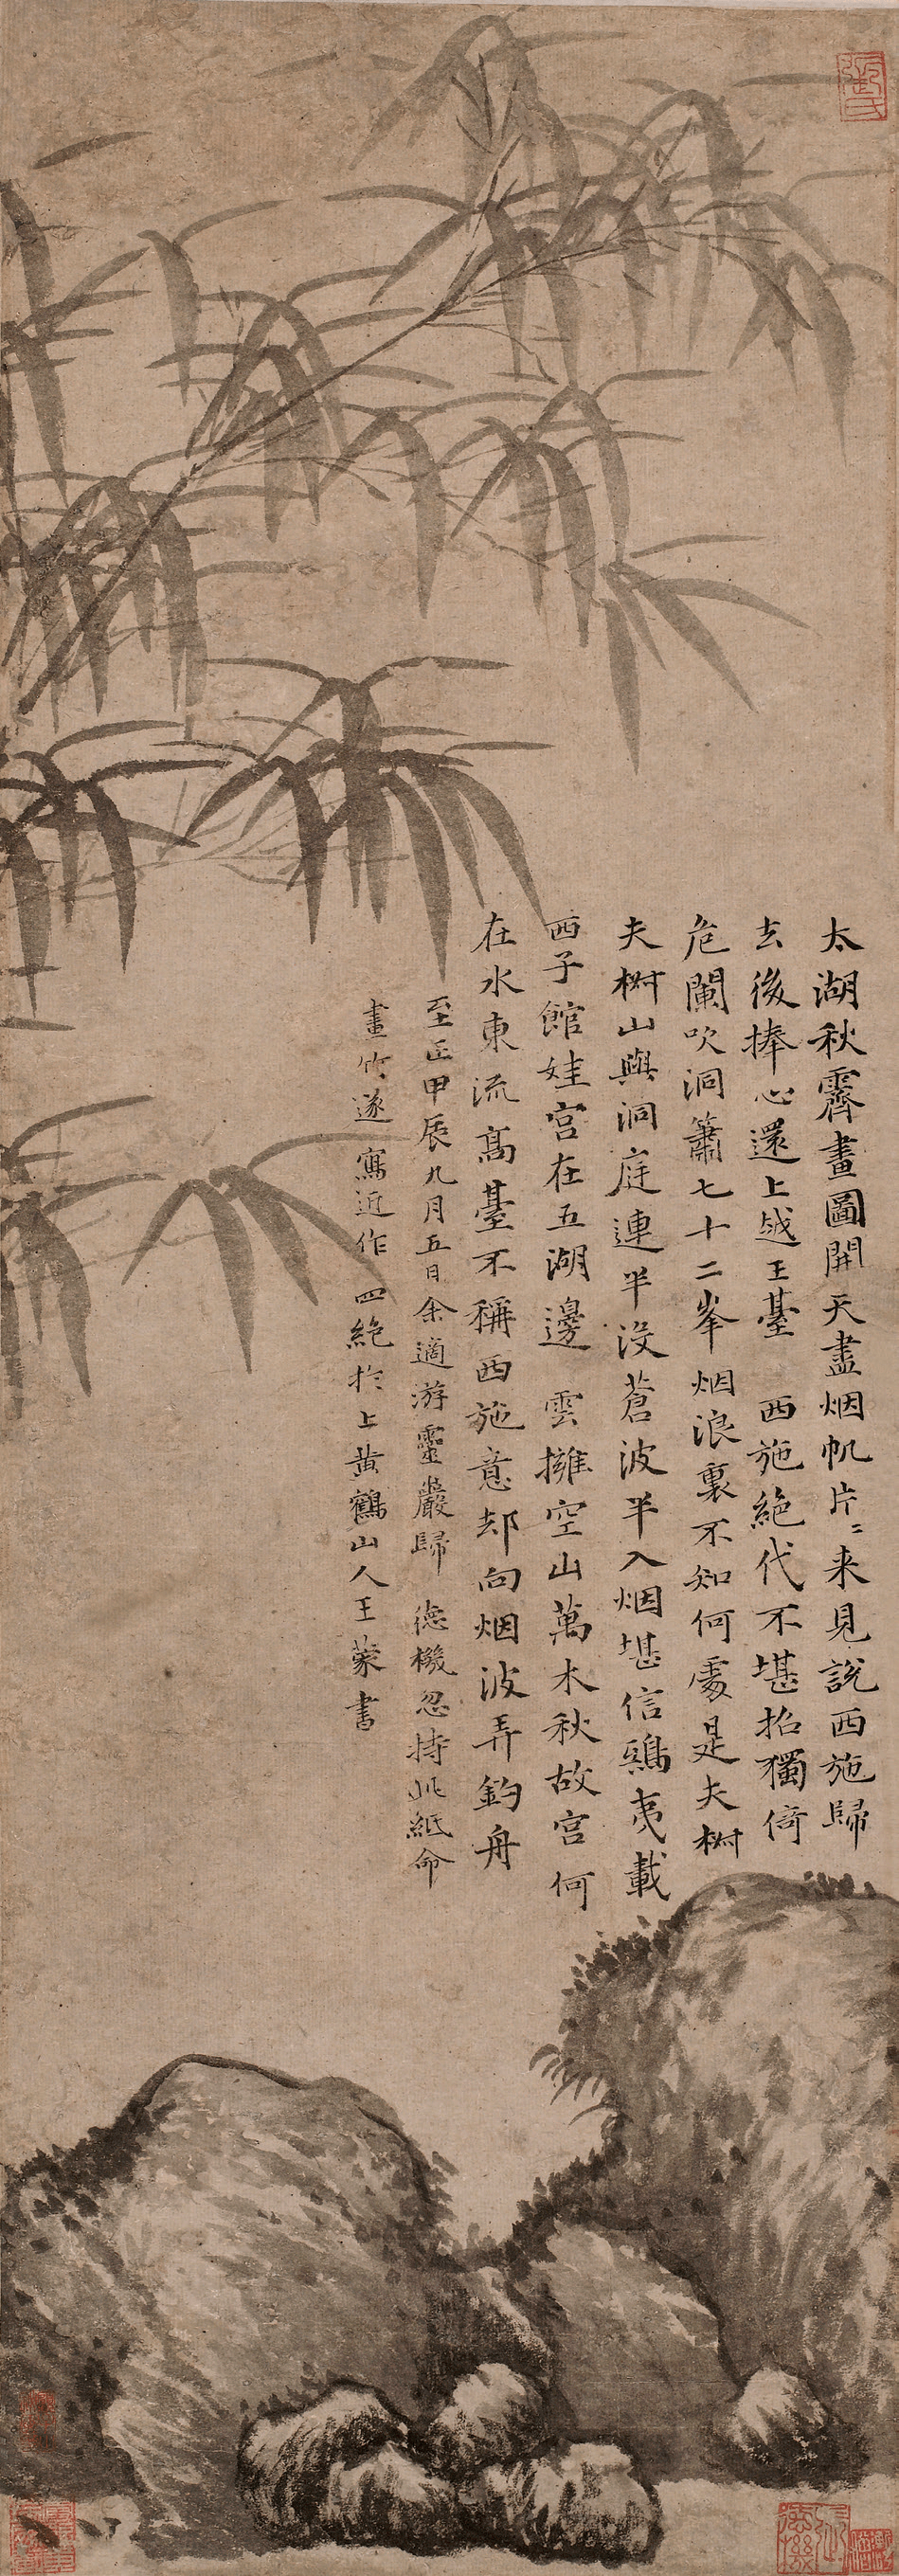 太湖秋霽畫圖開天盡烟帆片〻来見說西施歸
去後捧心還上越王臺 西施絶代不堪招獨倚
危闌吹洞簫七十二峯烟浪裏不知何處是夫椒
夫椒山與洞庭連半没蒼波半入烟堪信鴟夷載
西子館娃宫在五湖邊 雲擁空山萬木秋故宫何
在水東流髙臺不稱西施意却向烟波弄釣舟
至正甲辰九月五日余適游靈巖歸 徳機忽持此紙命
畫竹遂寫近作四絶扵上黄鶴山人王蒙書